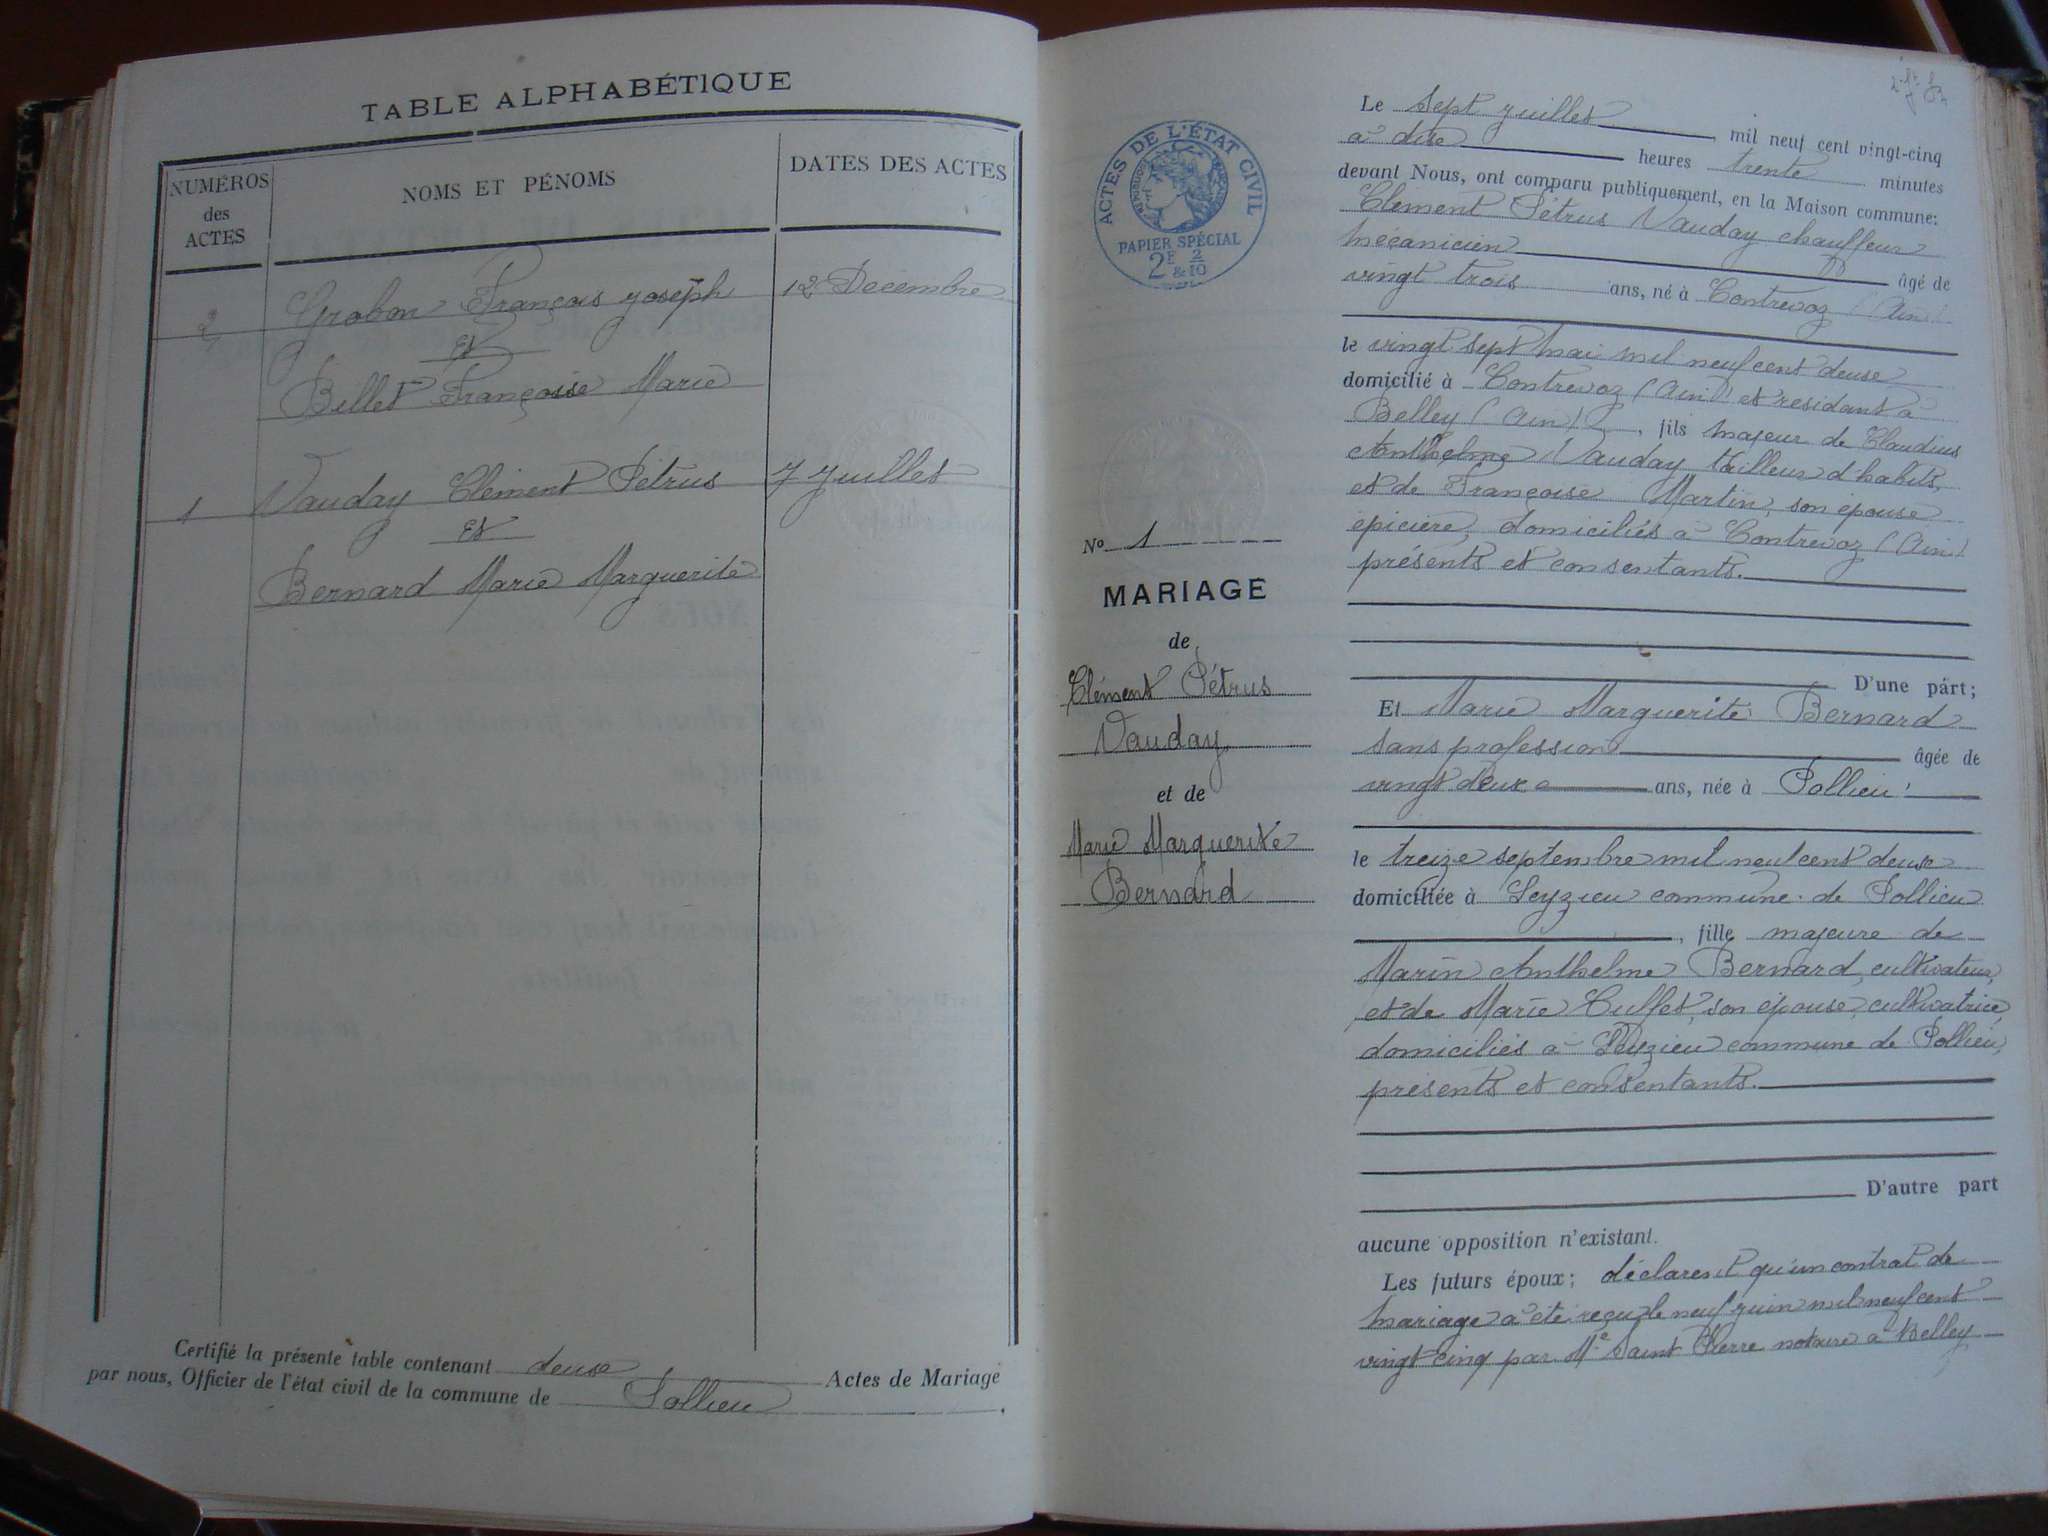 TABLE ALPHABÉTIQUE
NUMÉROS
des
ACTES
NOMS ET PÉNOMS
DATES DES ACTES
2
Grobon François Joseph
12 Décembre
et
Billet Françoise Marie
1
Vauday Clément Pétrus
7 Juillet
et
Bernard Marie Marguerite
Certifié la présente table contenant deux Actes de Mariage
par nous, Officier de l'état civil de la commune de Pollieu
ACTES DE L'ÉTAT CIVIL
RÉPUBLIQUE FRANÇAISE
PAPIER SPÉCIAL
2F 2/10
&
No 1
MARIAGE
de
Clément Pétrus
Vauday
et de
Marie Marguerite
Bernard
Le sept juillet mil neuf cent vingt-cinq
à dix heures trente minutes
devant Nous, ont comparu publiquement, en la Maison commune:
Clément Pétrus Vauday chauffeur
mécanicien âgé de
vingt trois ans, né à Contrevoz (Ain)
le vingt sept mai mil neuf cent deux
domicilié à Contrevoz (Ain) et résidant à
Belley (Ain), fils majeur de Claudius
Anthelme Vauday tailleur d'habits,
et de Françoise Martin, son épouse
épicière, domiciliés à Contrevoz (Ain)
présents et consentants.
D'une párt;
Et Marie Marguerite Bernard
sans profession âgée de
vingt deux ans, née à Pollieu
le treize septembre mil neuf cent deux
domiciliée à Leyzieu commune de Pollieu
, fille majeure de
Marin Anthelme Bernard, cultivateur,
et de Marie Cullet, son épouse, cultivatrice,
domiciliés à Leyzieu commune de Pollieu,
présents et consentants.
D'autre part
aucune opposition n'existant.
Les futurs époux; déclarent qu'un contrat de
mariage a été reçu le neuf juin mil neuf cent
vingt cinq par Me Saint Pierre notaire à Belley